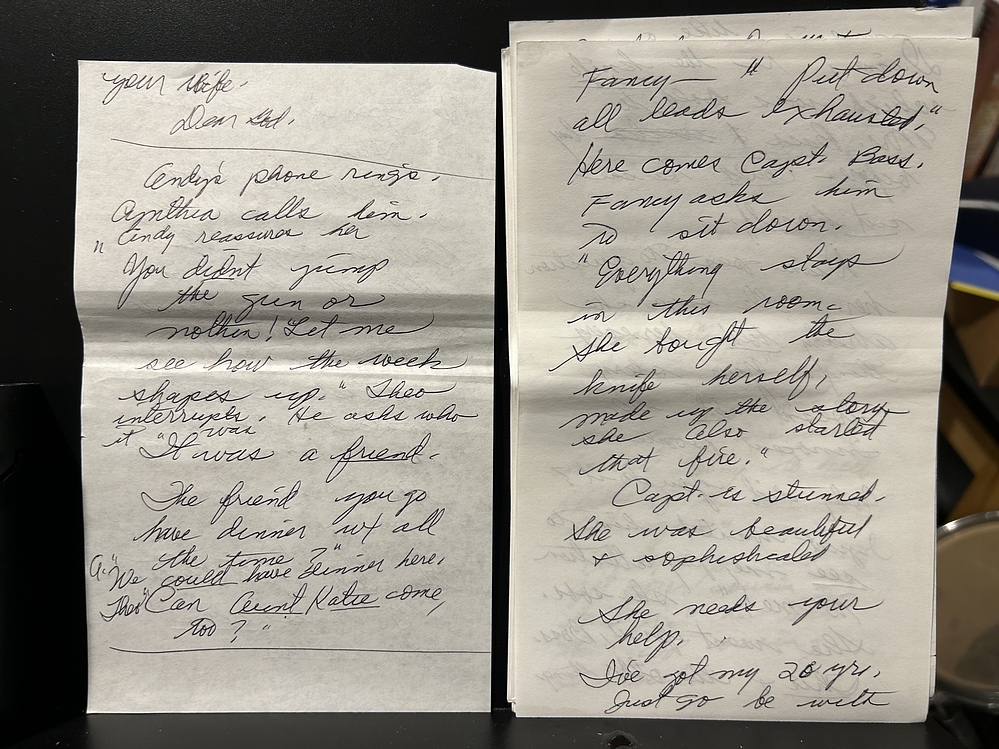 your Wife.
Dear God.
Andy's phone rings.
Cynthia calls him.
" Andy reassures her
You didnt jump
the gun or
nothin! Let me
see how the week
shapes up." Theo
interrupts. He asks who
it was
"It was a friend.
The friend you go
have dinner w/ all
the time?"
A: "We could have dinner here.
Theo "Can Aunt Katie come,
too? "
Fancy— " Put down
all leads exhausted."
Here comes Capt. Bass.
Fancy asks him
to sit down.
"Everything stays
in this room—
She bought the
knife herself,
made up the story
she also started
that fire."
Capt. is stunned.
She was beautiful
+ sophisticated
She needs your
help.
I've got my 20 yrs.
Just go be with